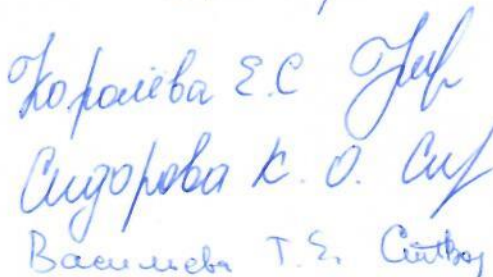 Королёва Е.С
Сидорова К. О.
Васильева Т. Е.